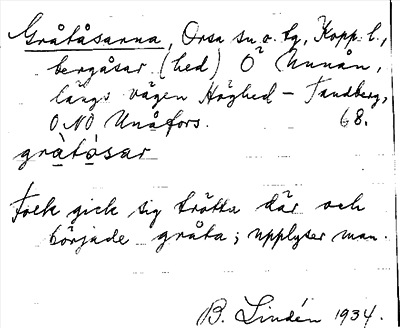 Gråtåsarna, Orsa sn o. tg, Kopp. l.,
bergåsar (hed) O Unnån,
längs vägen Höghed – Tandberg,
ONO Unåfors. 68.
grà̤tò̤sar
Folk gick sig trötta där och
började gråta; upplyser man.
B. Lindén 1934.